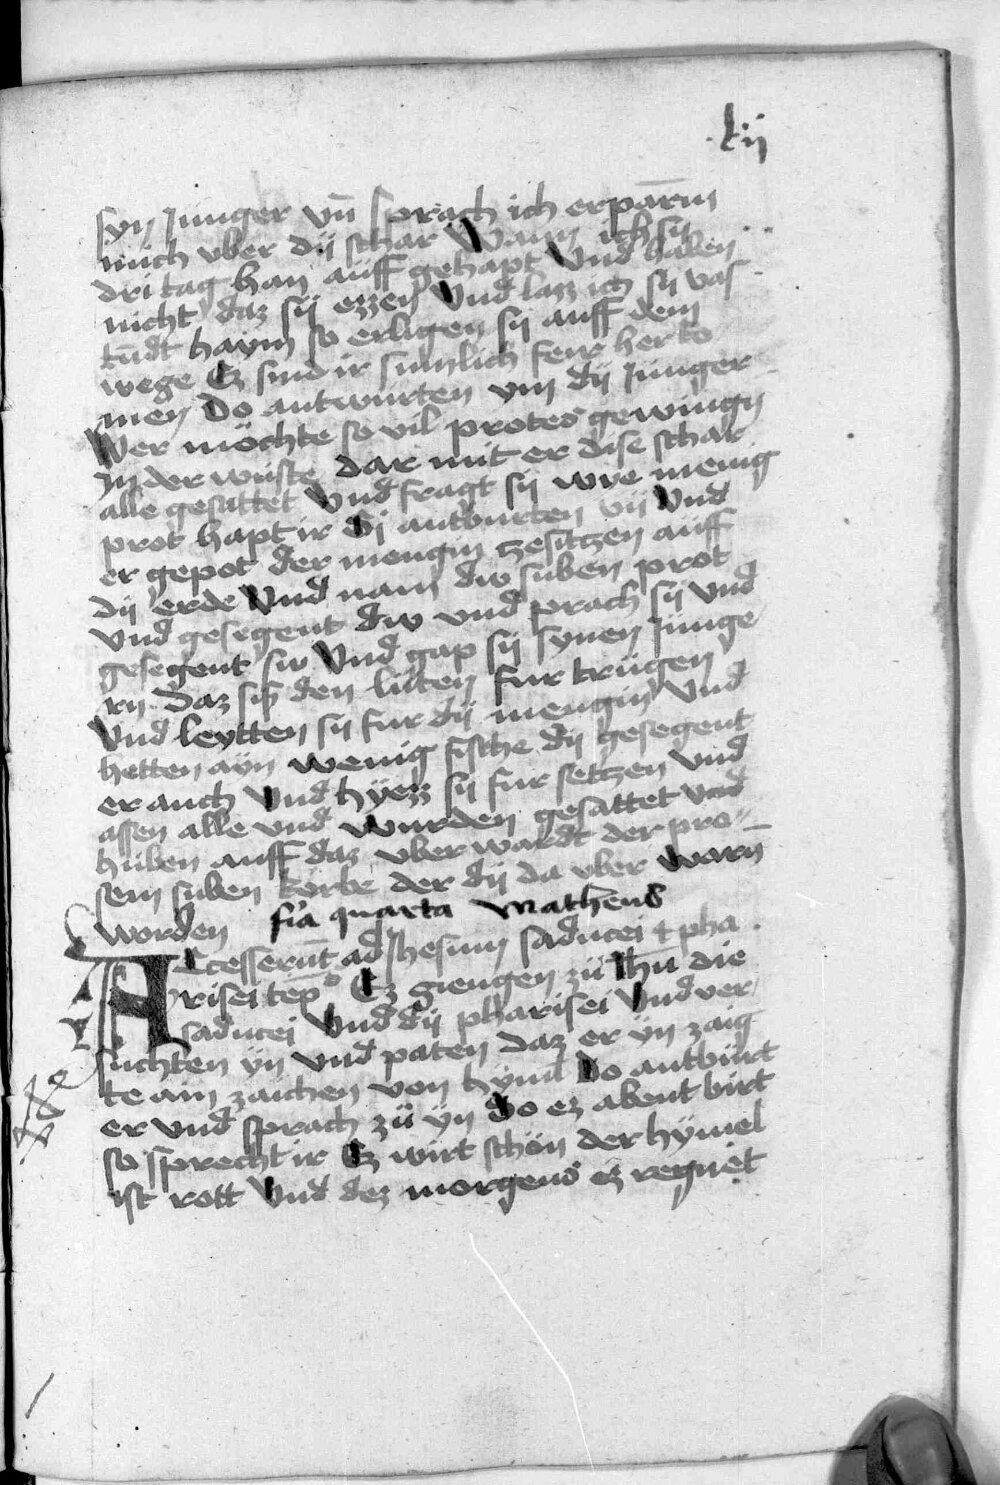 lij
syn Junger vn̄ sprach ich erparm
mich vber dij schar Wann ich sij
dri tag han auff gehapt Vnd haben
nicht daz sij ezzen Vnd lazz ich sij vas
tūdt haym so erligen sij auff dem
wege Ez sind ir sumlich ferr her ko
men Do antwurten ym dij Junger
Wer möchte so vil protes gewingn
In der wuste dar mit er dise schar
alle gesattet Vnd fragt sij wye menig
prot hapt ir Si antburten vij Vnd
er gepot der mengin zesitzen auff
dij erde Vnd nam diw siben prot
Vnd gesegent diw vnd prach sij vnd
gesegent siw Vnd gap sij synen Junge
rn daz sis den lüten fur trügen
Vnd leytten sij fur dij mengin Vnd
hetten ayn wenig fische dij gesegent
er auch Vnd hyezz sij fur setzen vnd
assen alle vnd wurden gesattet vnd
huben auff daz vber wardt der pro
sem siben körbe der dij da vber warn
worden fīa quarta Matheus
ACcesserūt ad Jhesum saducei & pha
risei tēpo Ez giengen zü ihū die
saducei Vnd dij pharisei Vnd ver
suchten yn vnd paten daz er yn zaig
te ain zaichen von hyml Do antbürt
er vnd sprach zü yn So ez abent birt
so sprecht ir Ez wirt schön der hymel
ist rott Vnd dez morgens ez regnet